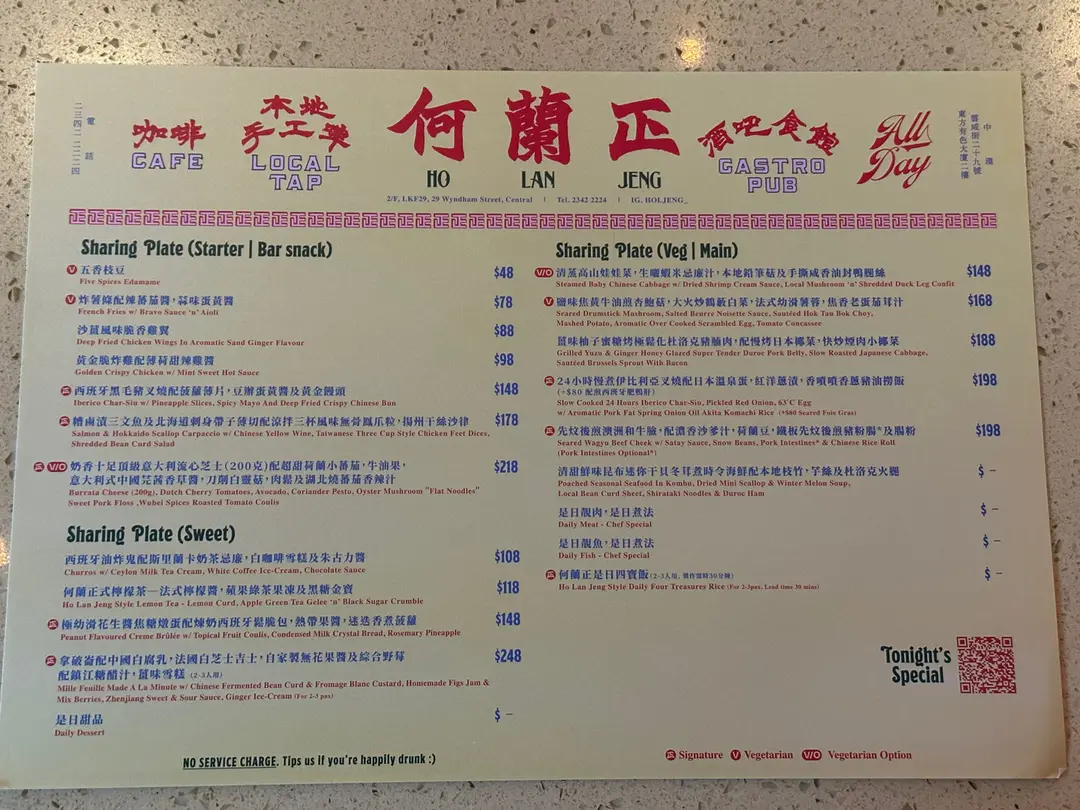 二三四二 二二二四
電話
咖啡
CAFE
本地
手工啤
LOCAL
TAP
何蘭正
HO LAN JENG
酒吧食館
GASTRO
PUB
All
Day
中環
雲咸街二十九號
東方有色大廈二樓
2/F, LKF29, 29 Wyndham Street, Central | Tel. 2342 2224 | IG. HOLJENG_
Sharing Plate (Starter | Bar snack)
V 五香枝豆 $48
Five Spices Edamame
V 炸薯條配辣蕃茄醬，蒜味蛋黃醬 $78
French Fries w/ Bravo Sauce 'n' Aioli
沙薑風味脆香雞翼 $88
Deep Fried Chicken Wings In Aromatic Sand Ginger Flavour
黃金脆炸雞配薄荷甜辣雞醬 $98
Golden Crispy Chicken w/ Mint Sweet Hot Sauce
正 西班牙黑毛豬叉燒配菠蘿薄片，豆瓣蛋黃醬及黃金饅頭 $148
Iberico Char-Siu w/ Pineapple Slices, Spicy Mayo And Deep Fried Crispy Chinese Bun
正 糟鹵漬三文魚及北海道刺身帶子薄切配涼拌三杯風味無骨鳳爪粒，揚州干絲沙律 $178
Salmon & Hokkaido Scallop Carpaccio w/ Chinese Yellow Wine, Taiwanese Three Cup Style Chicken Feet Dices,
Shredded Bean Curd Salad
正 V/O 奶香十足頂級意大利流心芝士(200克)配超甜荷蘭小蕃茄，牛油果， $218
意大利式中國芫茜香草醬，刀削白靈菇，肉鬆及湖北燒蕃茄香辣汁
Burrata Cheese (200g), Dutch Cherry Tomatoes, Avocado, Coriander Pesto, Oyster Mushroom "Flat Noodles"
Sweet Pork Floss ,Wubei Spices Roasted Tomato Coulis
Sharing Plate (Sweet)
西班牙油炸鬼配斯里蘭卡奶茶忌廉，白咖啡雪糕及朱古力醬 $108
Churros w/ Ceylon Milk Tea Cream, White Coffee Ice-Cream, Chocolate Sauce
何蘭正式檸檬茶—法式檸檬醬，蘋果綠茶果凍及黑糖金寶 $118
Ho Lan Jeng Style Lemon Tea - Lemon Curd, Apple Green Tea Gelee 'n' Black Sugar Crumble
正 極幼滑花生醬焦糖燉蛋配煉奶西班牙鬆脆包，熱帶果醬，迷迭香煮菠蘿 $148
Peanut Flavoured Creme Brûlée w/ Topical Fruit Coulis, Condensed Milk Crystal Bread, Rosemary Pineapple
正 拿破崙配中國白腐乳，法國白芝士吉士，自家製無花果醬及綜合野莓 $248
配鎮江糖醋汁，薑味雪糕 (2-3人用)
Mille Feuille Made A La Minute w/ Chinese Fermented Bean Curd & Fromage Blanc Custard, Homemade Figs Jam &
Mix Berries, Zhenjiang Sweet & Sour Sauce, Ginger Ice-Cream (For 2-3 pax)
是日甜品 $ –
Daily Dessert
NO SERVICE CHARGE. Tips us if you're happily drunk :)
Sharing Plate (Veg | Main)
V/O 清蒸高山娃娃菜，生曬蝦米忌廉汁，本地鉛筆菇及手撕咸香油封鴨腿絲 $148
Steamed Baby Chinese Cabbage w/ Dried Shrimp Cream Sauce, Local Mushroom 'n' Shredded Duck Leg Confit
V 鹽味焦黃牛油煎杏鮑菇，大火炒鶴藪白菜，法式幼滑薯蓉，焦香老蛋茄茸汁 $168
Seared Drumstick Mushroom, Salted Beurre Noisette Sauce, Sautéed Hok Tau Bok Choy,
Mashed Potato, Aromatic Over Cooked Scrambled Egg, Tomato Concassee
薑味柚子蜜糖烤極鬆化杜洛克豬腩肉，配慢烤日本椰菜，快炒煙肉小椰菜 $188
Grilled Yuzu & Ginger Honey Glazed Super Tender Duroc Pork Belly, Slow Roasted Japanese Cabbage,
Sautéed Brussels Sprout With Bacon
正 24小時慢煮伊比利亞叉燒配日本溫泉蛋，紅洋蔥漬，香噴噴香蔥豬油撈飯 $198
(+$80 配煎西班牙肥鴨肝)
Slow Cooked 24 Hours Iberico Char-Siu, Pickled Red Onion, 63℃ Egg
w/ Aromatic Pork Fat Spring Onion Oil Akita Komachi Rice (+$80 Seared Foie Gras)
正 先炆後煎澳洲和牛臉，配濃香沙爹汁，荷蘭豆，鐵板先炆後煎豬粉腸*及腸粉 $198
Seared Wagyu Beef Cheek w/ Satay Sauce, Snow Beans, Pork Intestines* & Chinese Rice Roll
(Pork Intestines Optional*)
清甜鮮味昆布迷你干貝冬茸煮時令海鮮配本地枝竹，芋絲及杜洛克火腿 $ –
Poached Seasonal Seafood In Kombu, Dried Mini Scallop & Winter Melon Soup,
Local Bean Curd Sheet, Shirataki Noodles & Duroc Ham
是日靚肉，是日煮法 $ –
Daily Meat - Chef Special
是日靚魚，是日煮法 $ –
Daily Fish - Chef Special
正 何蘭正是日四寶飯(2-3人用，製作需時30分鐘) $ –
Ho Lan Jeng Style Daily Four Treasures Rice (For 2-3pax, Lead time 30 mins)
Tonight's
Special
正 Signature V Vegetarian V/O Vegetarian Option